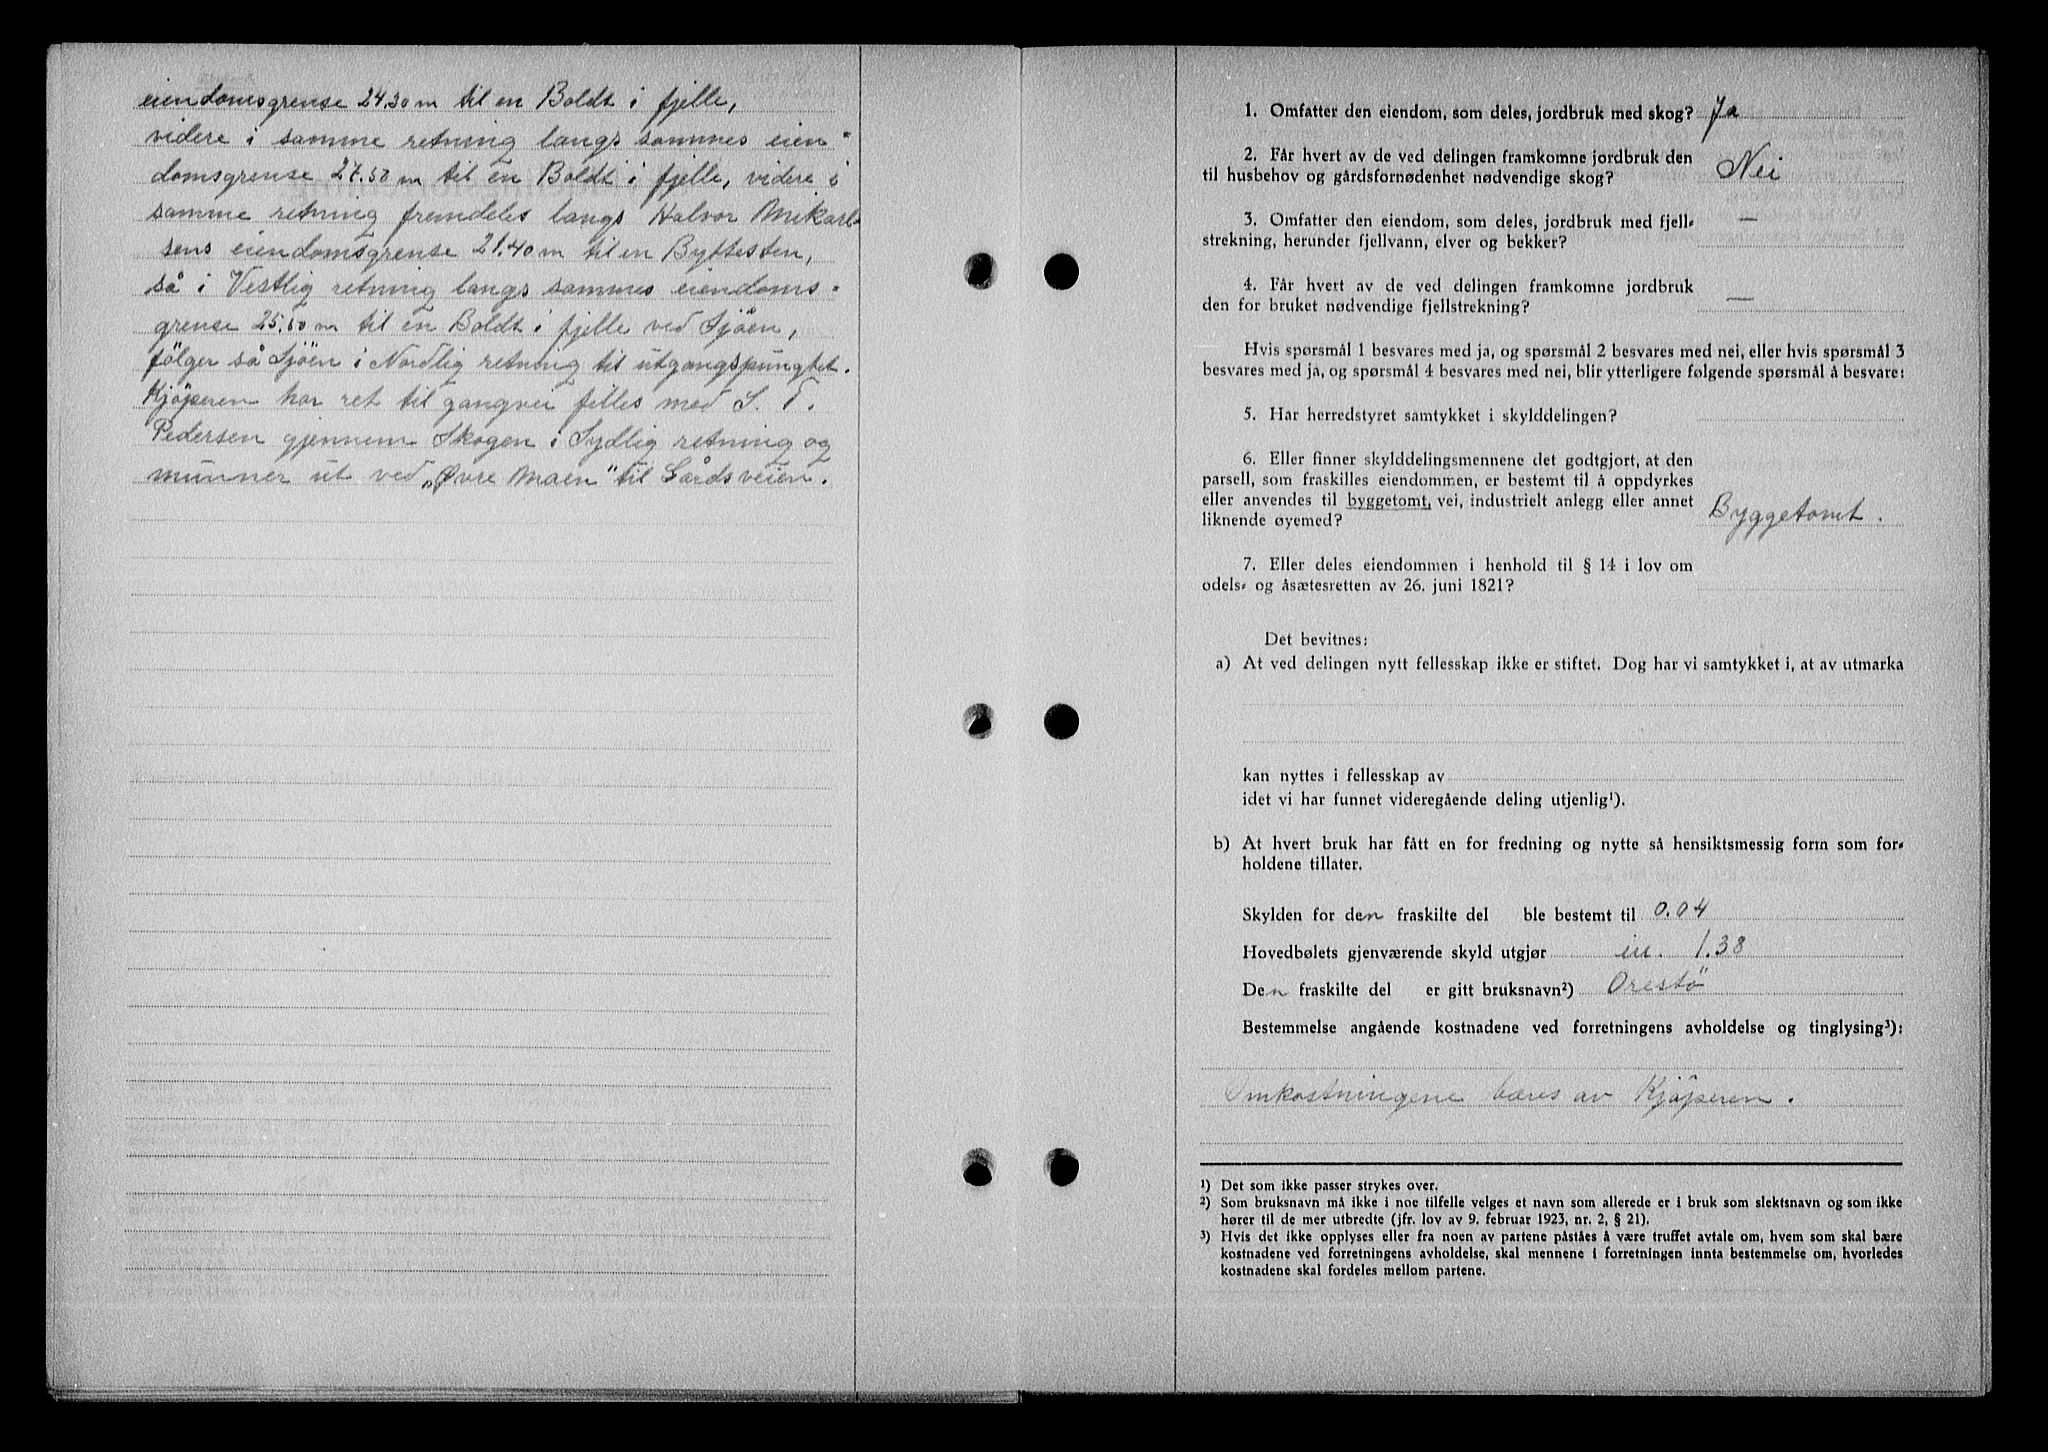 eiendomsgrense 24.30 m til en Boldt i fjelle,
videre i samme retning langs sammes eien-
domsgrense 27.50 m til en Boldt i fjelle, videre i
samme retning fremdeles langs Halvor Mikarl-
sens eiendomsgrense 21.40 m til en Byttesten,
så i Vestlig retning langs sammes eiendoms-
grense 25.60 m til en Boldt i fjelle ved Sjöen,
følger så Sjöen i Nordlig retning til utgangspungtet.
Kjöperen har ret til gangvei felles med S. T.
Pedersen gjennem Skogen i Sydlig retning og
munner ut ved „Øvre Maen" til Gårdsveien.
1. Omfatter den eiendom, som deles, jordbruk med skog? Ja
2. Får hvert av de ved delingen framkomne jordbruk den
til husbehov og gårdsfornødenhet nødvendige skog? Nei
3. Omfatter den eiendom, som deles, jordbruk med fjell-
strekning, herunder fjellvann, elver og bekker? —
4. Får hvert av de ved delingen framkomne jordbruk
den for bruket nødvendige fjellstrekning? —
Hvis spørsmål 1 besvares med ja, og spørsmål 2 besvares med nei, eller hvis spørsmål 3
besvares med ja, og spørsmål 4 besvares med nei, blir ytterligere følgende spørsmål å besvare:
5. Har herredstyret samtykket i skylddelingen?
6. Eller finner skylddelingsmennene det godtgjort, at den
parsell, som fraskilles eiendommen, er bestemt til å oppdyrkes
eller anvendes til byggetomt, vei, industrielt anlegg eller annet
liknende øyemed? Byggetomt.
7. Eller deles eiendommen i henhold til § 14 i lov om
odels- og åsætesretten av 26. juni 1821?
Det bevitnes:
a) At ved delingen nytt fellesskap ikke er stiftet. Dog har vi samtykket i, at av utmarka
kan nyttes i fellesskap av
idet vi har funnet videregående deling utjenlig¹).
b) At hvert bruk har fått en for fredning og nytte så hensiktsmessig form som for-
holdene tillater.
Skylden for den fraskilte del ble bestemt til 0.04
Hovedbølets gjenværende skyld utgjør m. 1.38
Den fraskilte del er gitt bruksnavn²) Orestö
Bestemmelse angående kostnadene ved forretningens avholdelse og tinglysing³):
Omkostningene bæres av Kjöperen.
¹) Det som ikke passer strykes over.
²) Som bruksnavn må ikke i noe tilfelle velges et navn som allerede er i bruk som slektsnavn og som ikke
hører til de mer utbredte (jfr. lov av 9. februar 1923, nr. 2, § 21).
³) Hvis det ikke opplyses eller fra noen av partene påståes å være truffet avtale om, hvem som skal bære
kostnadene ved forretningens avholdelse, skal mennene i forretningen innta bestemmelse om, hvorledes
kostnadene skal fordeles mellom partene.